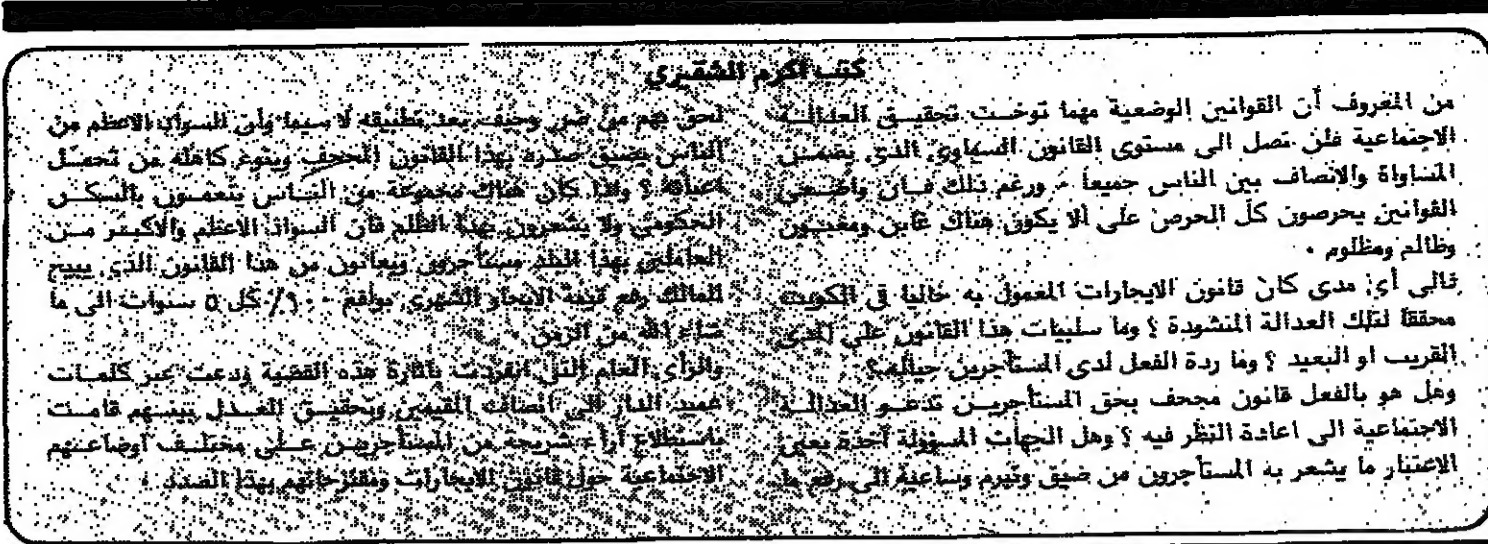 كتب اكرم الشقيري
من المعروف أن القوانين الوضعية مهما توخت تحقيق العدالة
الاجتماعية فلن تصل الى مستوى القانون السماوي الذي يضمن
المساواة والانصاف بين الناس جميعاً - ورغم ذلك فان واضعي
القوانين يحرصون كل الحرص على ألا يكون هناك غابن ومغبون
وظالم ومظلوم .
فالى أي مدى كان قانون الايجارات المعمول به حاليا في الكويت
محققا لتلك العدالة المنشودة ؟ وما سلبيات هذا القانون على المدى
القريب او البعيد ؟ وما ردة الفعل لدى المستأجرين حياله؟
وهل هو بالفعل قانون مجحف بحق المستأجرين تدعو العدالة
الاجتماعية الى اعادة النظر فيه ؟ وهل الجهات المسؤولة آخذة بعين
الاعتبار ما يشعر به المستأجرون من ضيق وتبرم وساعية الى رفع ما
لحق بهم من ضرر وحيف بعد تطبيقه لا سيما وأن السواد الاعظم من
الناس يضيق صدره بهذا القانون المجحف وينوء كاهله من تحمل
اعبائه ؟ واذا كان هناك مجموعة من الناس يتعمون بالسكن
الحكومي ولا يشعرون بهذا الظلم فان السواد الاعظم والاكبر من
العاملين بهذا البلد مستأجرون ويعانون من هذا القانون الذي يبيح
للمالك رفع قيمة الايجار الشهري بواقع ١٠٠٪ كل ٥ سنوات الى ما
شاء الله من الزمن .
والرأي العام التي انفردت باثارة هذه القضية ودعت عبر كلمات
عميد الدار الى انصاف المقيمين وتحقيق العدل بينهم قامت
باستطلاع آراء شريحة من المستأجرين على مختلف أوضاعهم
الاجتماعية حول قانون الايجارات ومقترحاتهم بهذا الصدد .